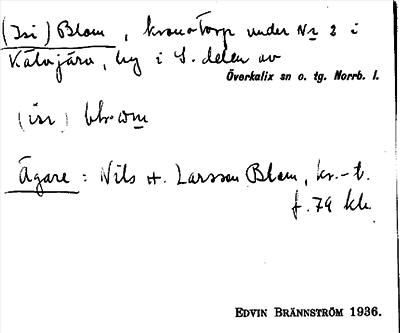 (Isi) Blom, kronotorp under Nr 2 i
Kälvjärv, by i S. delen av
Överkalix sn o. tg. Norrb. l.
Ägare: Nils H. Larsson Blom, kr.-t.
f. 79 kls.
EDVIN BRÄNNSTRÖM 1936.